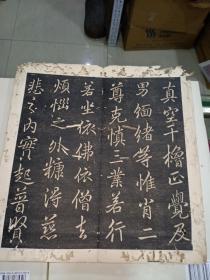 真空千檐正覺及
男緬緒等惟肖二
尊克慎三業若行
若坐依佛依僧去
煩惱之外糠得慈
悲之内寶起普賢